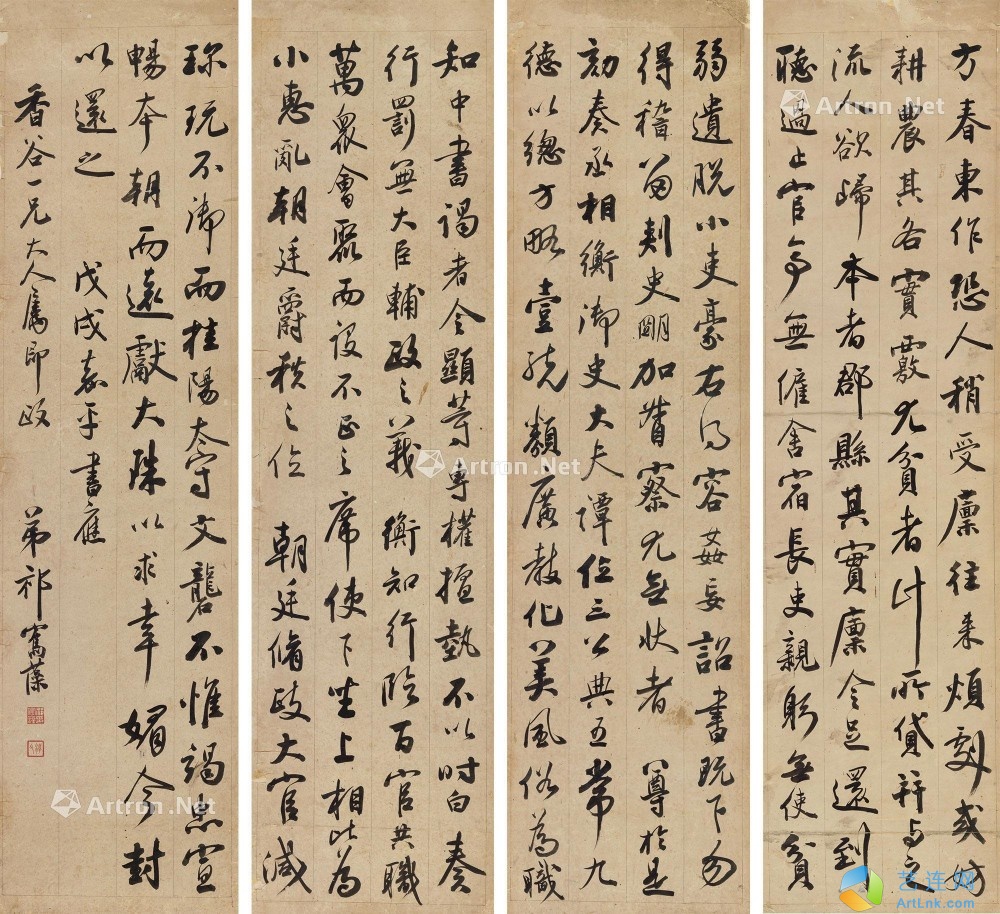 方春東作恐人稍受廩往来煩劇或妨
耕農其各實覈尤貧者計所貸并与之
流人欲歸本者郡縣其實廩令足還到
聽過止官亭無僱舍宿長吏親躬無使貧
弱遺脫小吏豪右得容姦妄詔書既下勿
得稽留刺史明加督察尤無狀者 尊於是
劾奏丞相衡御史大夫譚位三公典五常九
德以總方略壹統類廣教化美風俗為職
知中書謁者令顯等專權擅埶不以时白奏
行罰無大臣輔政之義 衡知行臨百官共職
萬眾會聚而設不正之席使下坐上相比為
小惠亂朝廷爵秩之位 朝廷脩政大官減
珎玩不御而桂陽太守文礱不惟竭忠宣
暢本朝而遠獻大珠以求幸媚今封
以還之
戊戌嘉平書應
香谷一兄大人属即政 弟祁寯藻
Artron.Net
Artron.Net
Artron.Net
Artron.Net
艺连网
ArtLnk.com